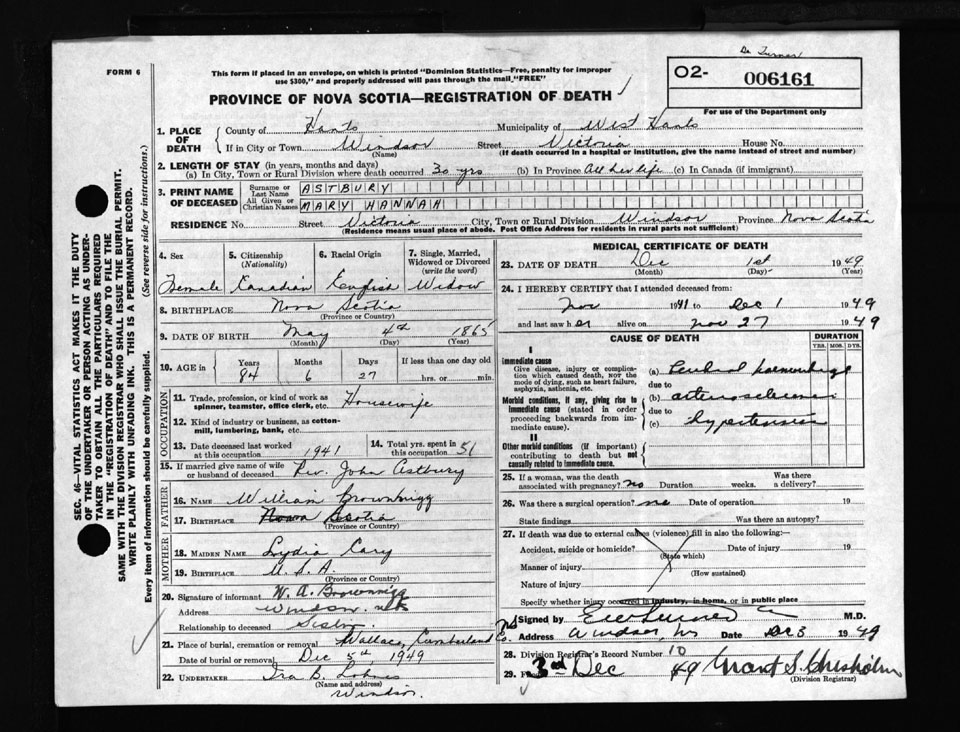 Dr Turner
FORM 6
This form if placed in an envelope, on which is printed "Dominion Statistics—Free, penalty for improper
use $300," and properly addressed will pass through the mail, "FREE"
O2- 006161
PROVINCE OF NOVA SCOTIA—REGISTRATION OF DEATH
For use of the Department only
1. PLACE OF DEATH
County of Hants Municipality of West Hants
If in City or Town Windsor Street Victoria House No.
(Name) (If death occurred in a hospital or institution, give the name instead of street and number)
2. LENGTH OF STAY (in years, months and days)
(a) In City, Town or Rural Division where death occurred 30 yrs (b) In Province All her life (c) In Canada (if immigrant)
3. PRINT NAME OF DECEASED
Surname or Last Name ASTBURY
All Given or Christian Names MARY HANNAH
RESIDENCE No. Street Victoria City, Town or Rural Division Windsor Province Nova Scotia
(Residence means usual place of abode. Post Office Address for residents in rural parts not sufficient)
4. Sex 5. Citizenship (Nationality) 6. Racial Origin 7. Single, Married, Widowed or Divorced (write the word)
Female Canadian English Widow
8. BIRTHPLACE Nova Scotia
(Province or Country)
9. DATE OF BIRTH May 4th 1865
(Month) (Day) (Year)
10. AGE in Years Months Days If less than one day old
84 6 27 hrs. or min.
OCCUPATION
11. Trade, profession, or kind of work as spinner, teamster, office clerk, etc. Housewife
12. Kind of industry or business, as cotton-mill, lumbering, bank, etc.
13. Date deceased last worked at this occupation 1941 14. Total yrs. spent in this occupation 51
15. If married give name of wife or husband of deceased Rev. John Astbury
FATHER
16. NAME William Brownrigg
17. BIRTHPLACE Nova Scotia
(Province or Country)
MOTHER
18. MAIDEN NAME Lydia Cary
19. BIRTHPLACE U.S.A.
(Province or Country)
20. Signature of informant W. A. Brownrigg
Address Windsor NS
Relationship to deceased
21. Place of burial, cremation or removal Wallace, Cumberland Co.
Date of burial or removal Dec 5th 1949
22. UNDERTAKER Ira B.
(Name and address)
Windsor.
MEDICAL CERTIFICATE OF DEATH
23. DATE OF DEATH Dec 1st 1949
(Month) (Day) (Year)
24. I HEREBY CERTIFY that I attended deceased from:
Nov 1941 to Dec 1 1949
and last saw her alive on Nov 27 1949
CAUSE OF DEATH DURATION
YRS. MOS. DYS.
I
Immediate cause
Give disease, injury or complication which caused death, not the mode of dying, such as heart failure, asphyxia, asthenia, etc.
(a) Cerebral haemorrhage
due to
Morbid conditions, if any, giving rise to immediate cause (stated in order proceeding backwards from immediate cause).
(b) arteriosclerosis
due to
(c) hypertension
II
Other morbid conditions (if important) contributing to death but not causally related to immediate cause.
25. If a woman, was the death associated with pregnancy? no Duration weeks. Was there a delivery?
26. Was there a surgical operation? no Date of operation 19
State findings Was there an autopsy?
27. If death was due to external causes (violence) fill in also the following:—
Accident, suicide or homicide? Date of injury 19
(State which)
Manner of injury
(How sustained)
Nature of injury
Specify whether injury occurred in industry, in home, or in public place
Signed by M.D.
Address Windsor, NS Date Dec 3 1949
28. Division Registrar's Record Number 10
29. 3rd Dec 49 Grant S. Chisholm
(Division Registrar)
SEC. 46—VITAL STATISTICS ACT MAKES IT THE DUTY
OF THE UNDERTAKER OR PERSON ACTING AS UNDER-
TAKER TO OBTAIN ALL THE PARTICULARS REQUIRED
IN THE "REGISTRATION OF DEATH" AND TO FILE THE
SAME WITH THE DIVISION REGISTRAR WHO SHALL ISSUE THE BURIAL PERMIT.
WRITE PLAINLY WITH UNFADING INK. THIS IS A PERMANENT RECORD.
Every item of information should be carefully supplied. (See reverse side for instructions.)